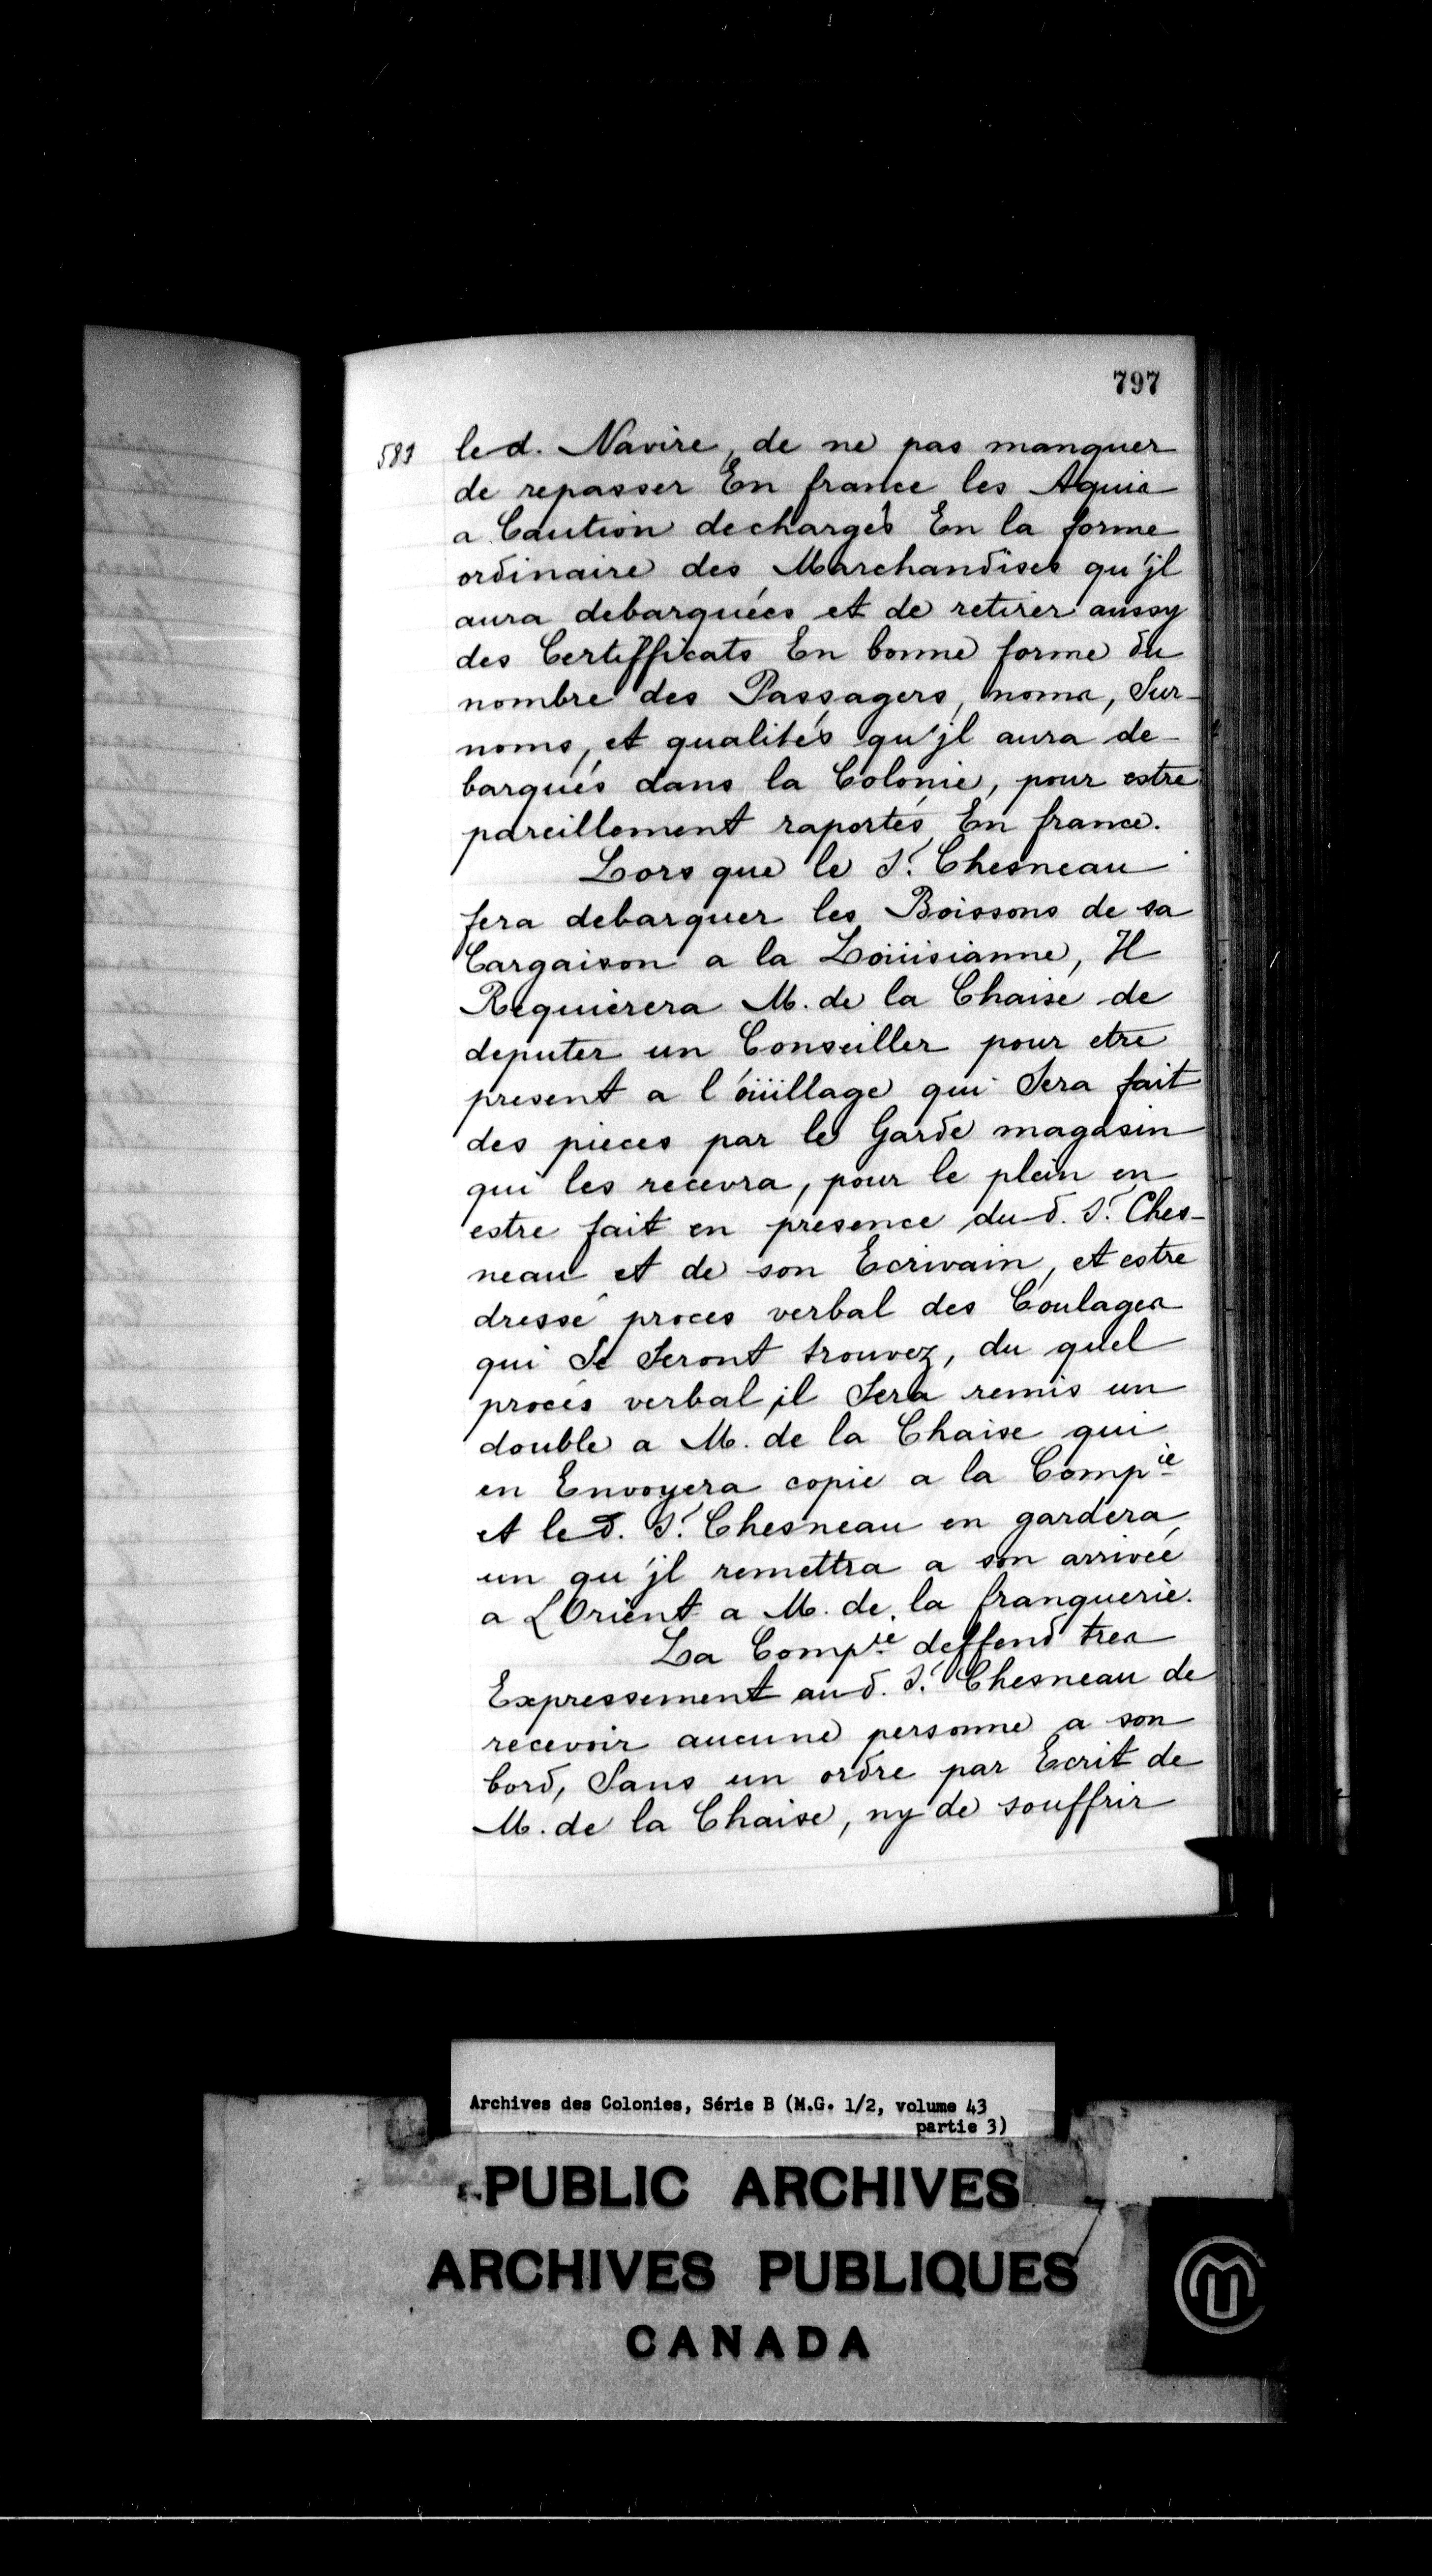 797
583 led. Navire, de ne pas manquer
de repasser En france les Aquis
a Caution dechargés En la forme
ordinaire des Marchandises qu'jl
aura debarquées et de retirer aussy
des Certifficats En bonne forme du
nombre des Passagers, noms, Sur-
noms, et qualités qu'jl aura de-
barqués dans la Colonie, pour estre
pareillement raportés En france.
Lors que le Sr. Chesneau
fera debarquer les Boissons de sa
Cargaison a la Loüisianne, Il
Requièrera M. de la Chaise de
deputer un Conseiller pour etre
present a l'oüillage qui Sera fait
des pieces par le Garde magasin
qui les recevra, pour le plein en
estre fait en presence dud. Sr. Ches-
neau et de son Ecrivain, et estre
dressé proces verbal des Coulages
qui Se Seront trouvez, du quel
procés verbal il Sera remis un
double a M. de la Chaise qui
en Envoyera copie a la Compie
et led. Sr. Chesneau en gardera
un qu'jl remettra a son arrivée
a L'Orient a M. de la franquerie.
La Compie deffend tres
Expressement aud. Sr. Chesneau de
recevoir aucune personne a son
bord, Sans un ordre par Ecrit de
M. de la Chaise, ny de souffrir
Archives des Colonies, Série B (M.G. 1/2, volume 43
partie 3)
PUBLIC ARCHIVES
ARCHIVES PUBLIQUES
CANADA